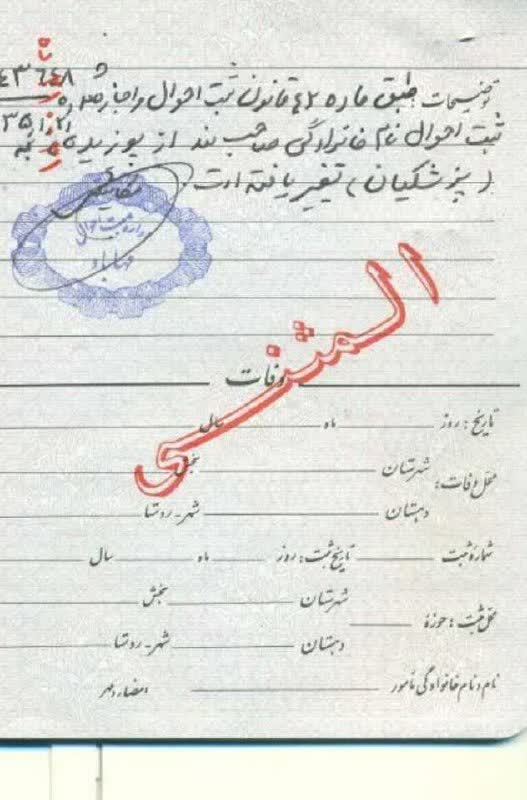 توضیحات: طبق ماده ۴۲ قانون ثبت احوال و اجازه شماره ۴۳۶۴۸
ثبت احوال نام خانوادگی صاحب سند از
(پزشکیان) تغییر یافته است.
اداره ثبت احوال
مهاباد
المثنی
وفات
تاریخ: روز ماه سال
محل وفات: شهرستان بخش
دهستان شهر-روستا
شماره ثبت تاریخ ثبت: روز ماه سال
محل ثبت: حوزه شهرستان بخش
دهستان شهر-روستا
نام و نام خانوادگی مأمور امضاء و مهر